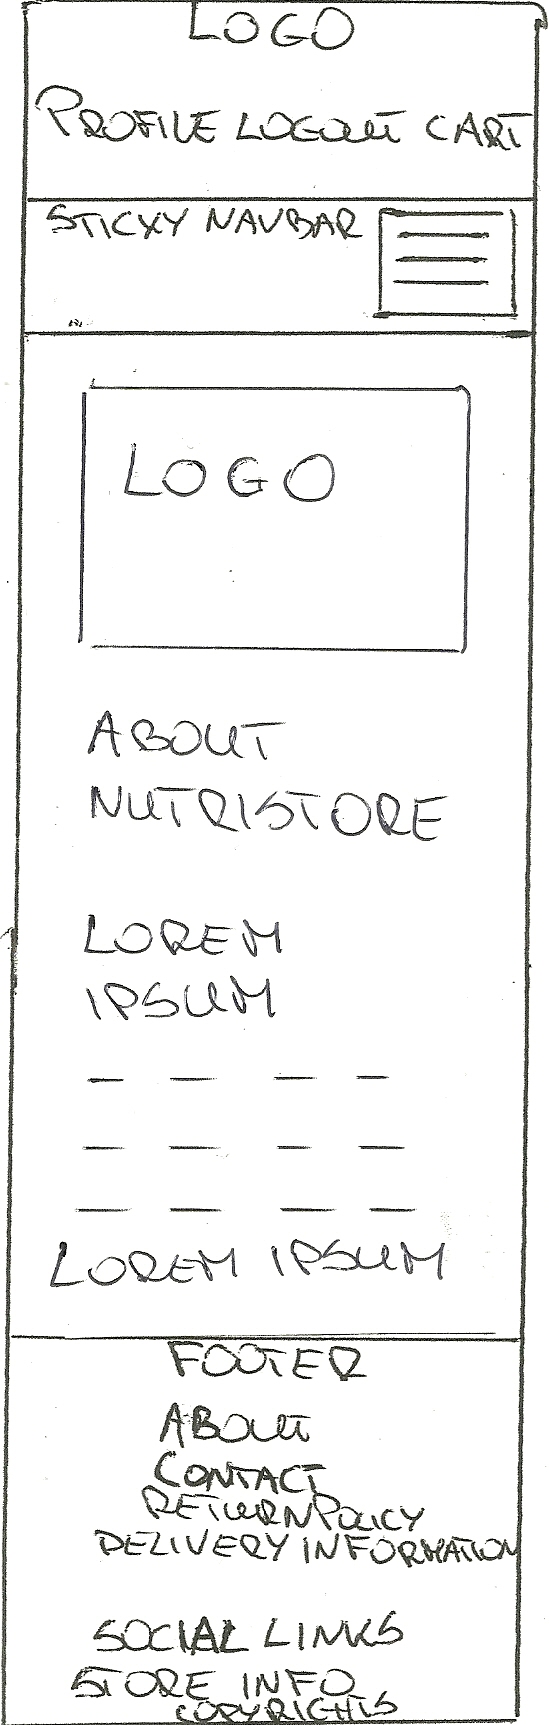 LOGO
PROFILE LOGOUT CART
STICKY NAVBAR
LOGO
ABOUT
NUTRISTORE
LOREM
IPSUM
LOREM IPSUM
FOOTER
ABOUT
CONTACT
RETURN POLICY
DELIVERY INFORMATION
SOCIAL LINKS
STORE INFO
COPYRIGHTS